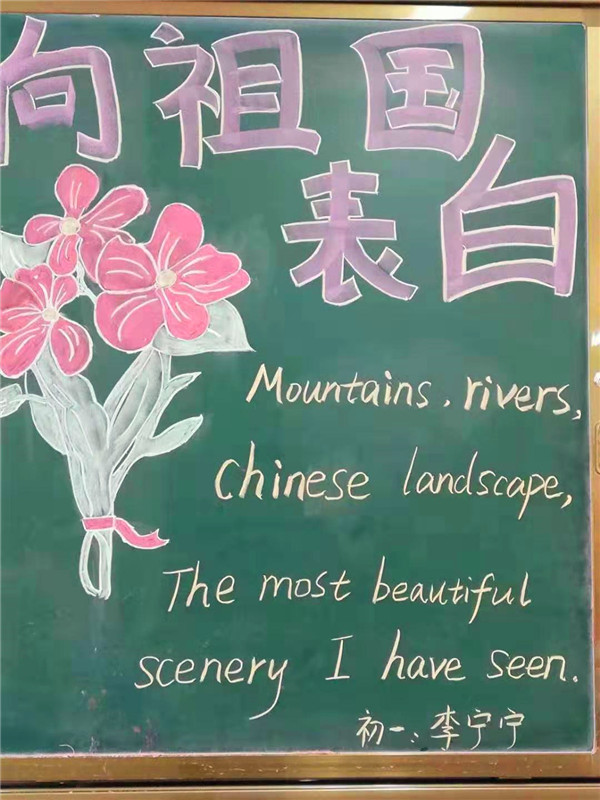 向祖国
表白
Mountains, rivers,
Chinese landscape,
The most beautiful
scenery I have seen.
初一:李宁宁